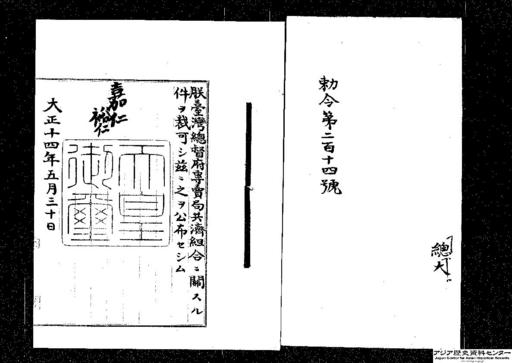 勅令第二百十四號
總大
朕臺灣總督府專賣局共濟組合ニ關スル
件ヲ裁可シ茲ニ之ヲ公布セシム
嘉仁
裕仁
天皇
御璽
大正十四年五月三十日
アジア歴史資料センター
Japan Center for Asian Historical Records